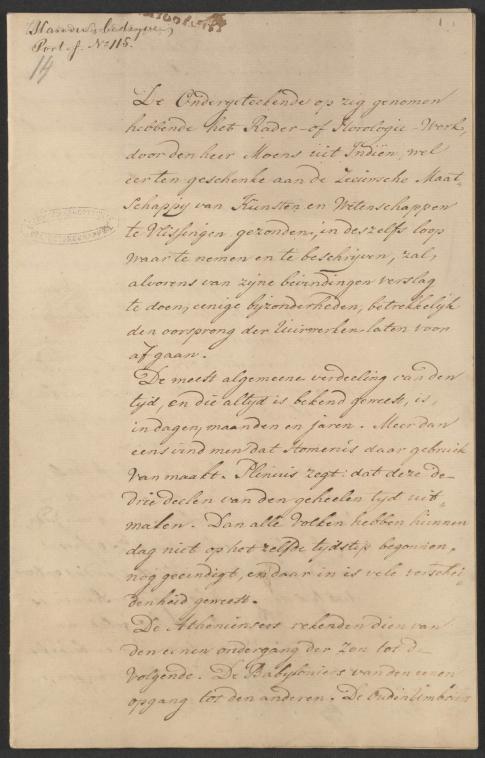 Port. f. No 115.
14
De Ondergeteekende op zig genomen
hebbende het Rader- of Horologie-Werk,
door den heer Moens uit Indiën, wel
eer ten geschenke aan de Zeeuwsche Maat-
schappij van Kunsten en Wetenschappen
te Vlissingen gezonden, in deszelfs loop
waar te nemen en te beschrijven, zal,
alvorens van zijne bevindingen verslag
te doen, eenige bijzonderheden, betrekkelijk
den oorsprong der Uurwerken laten voor
af gaan.
De meest algemeene verdeeling van den
tijd, en die altyd is bekend geweest, is,
in dagen, maanden en jaren. Meer dan
eens vind men dat Homerus daar gebruik
van maakt. Plinius zegt: dat deze de
drie deelen van den geheelen tyd uit-
maken. Dan alle Volken hebben hunnen
dag niet op het zelfde tydstip begonnen,
nog geeindigt, en daar in is vele verschei-
denheid geweest.
De Atheniensers rekenden dien van
den eenen ondergang der zon tot d-
volgende. De Babyloniers van den eenen
opgang tot den anderen. De Oude Umbriers